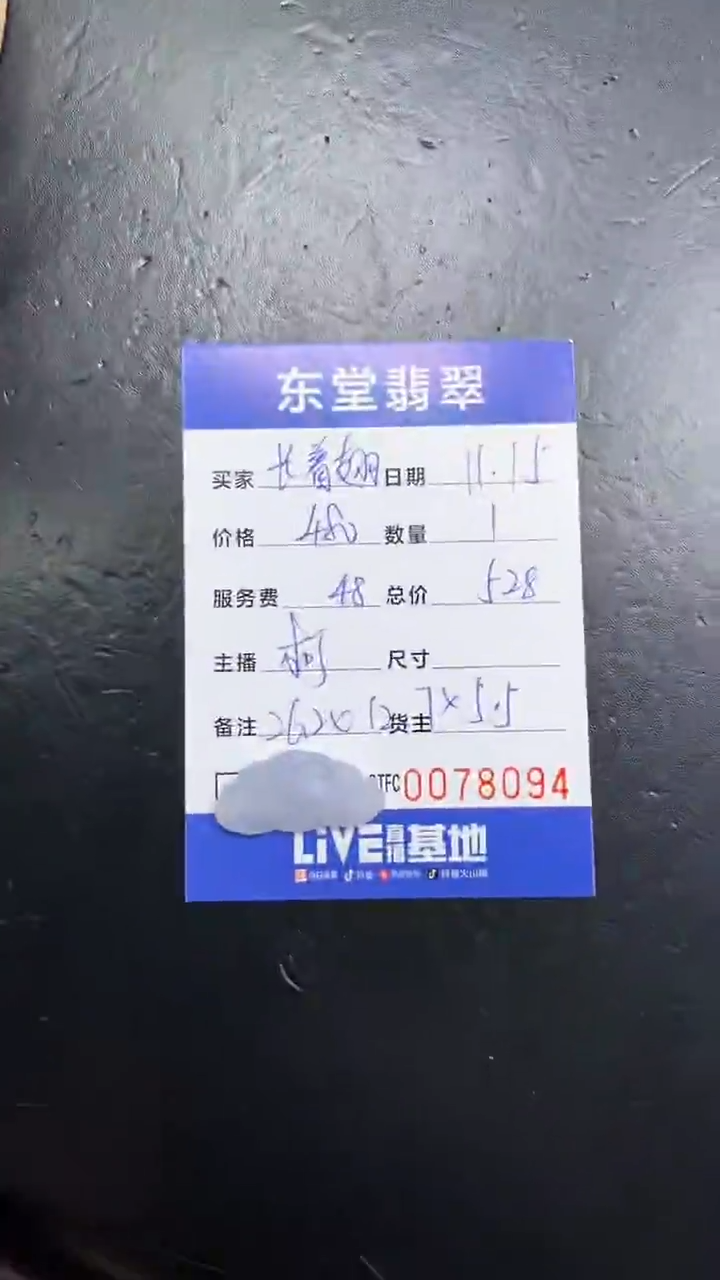 东堂翡翠
买家 长着翅 日期 11.15
价格 480 数量 1
服务费 48 总价 528
主播 柯 尺寸
备注 26.2x12 货主 7x5.5
TFC 0078094
LiVE直播基地